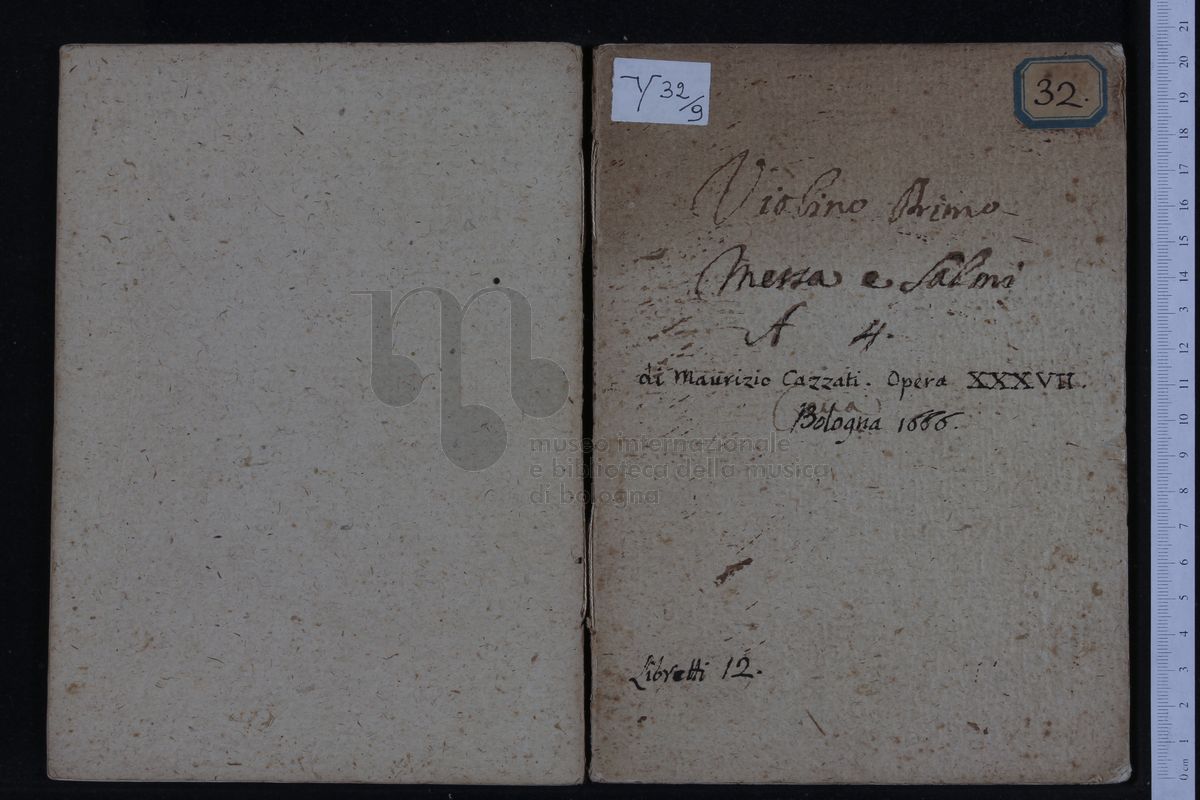 Y 32/9
32.
Violino Primo
Messa e Salmi
A 4.
di Maurizio Cazzati. Opera XXXVII.
Bologna 1666.
museo internazionale
e biblioteca della musica
di bologna
Libretti 12.
21
20
19
18
17
16
15
14
3
12
11
10
9
8
7
6
5
4
3
2
1
0 cm